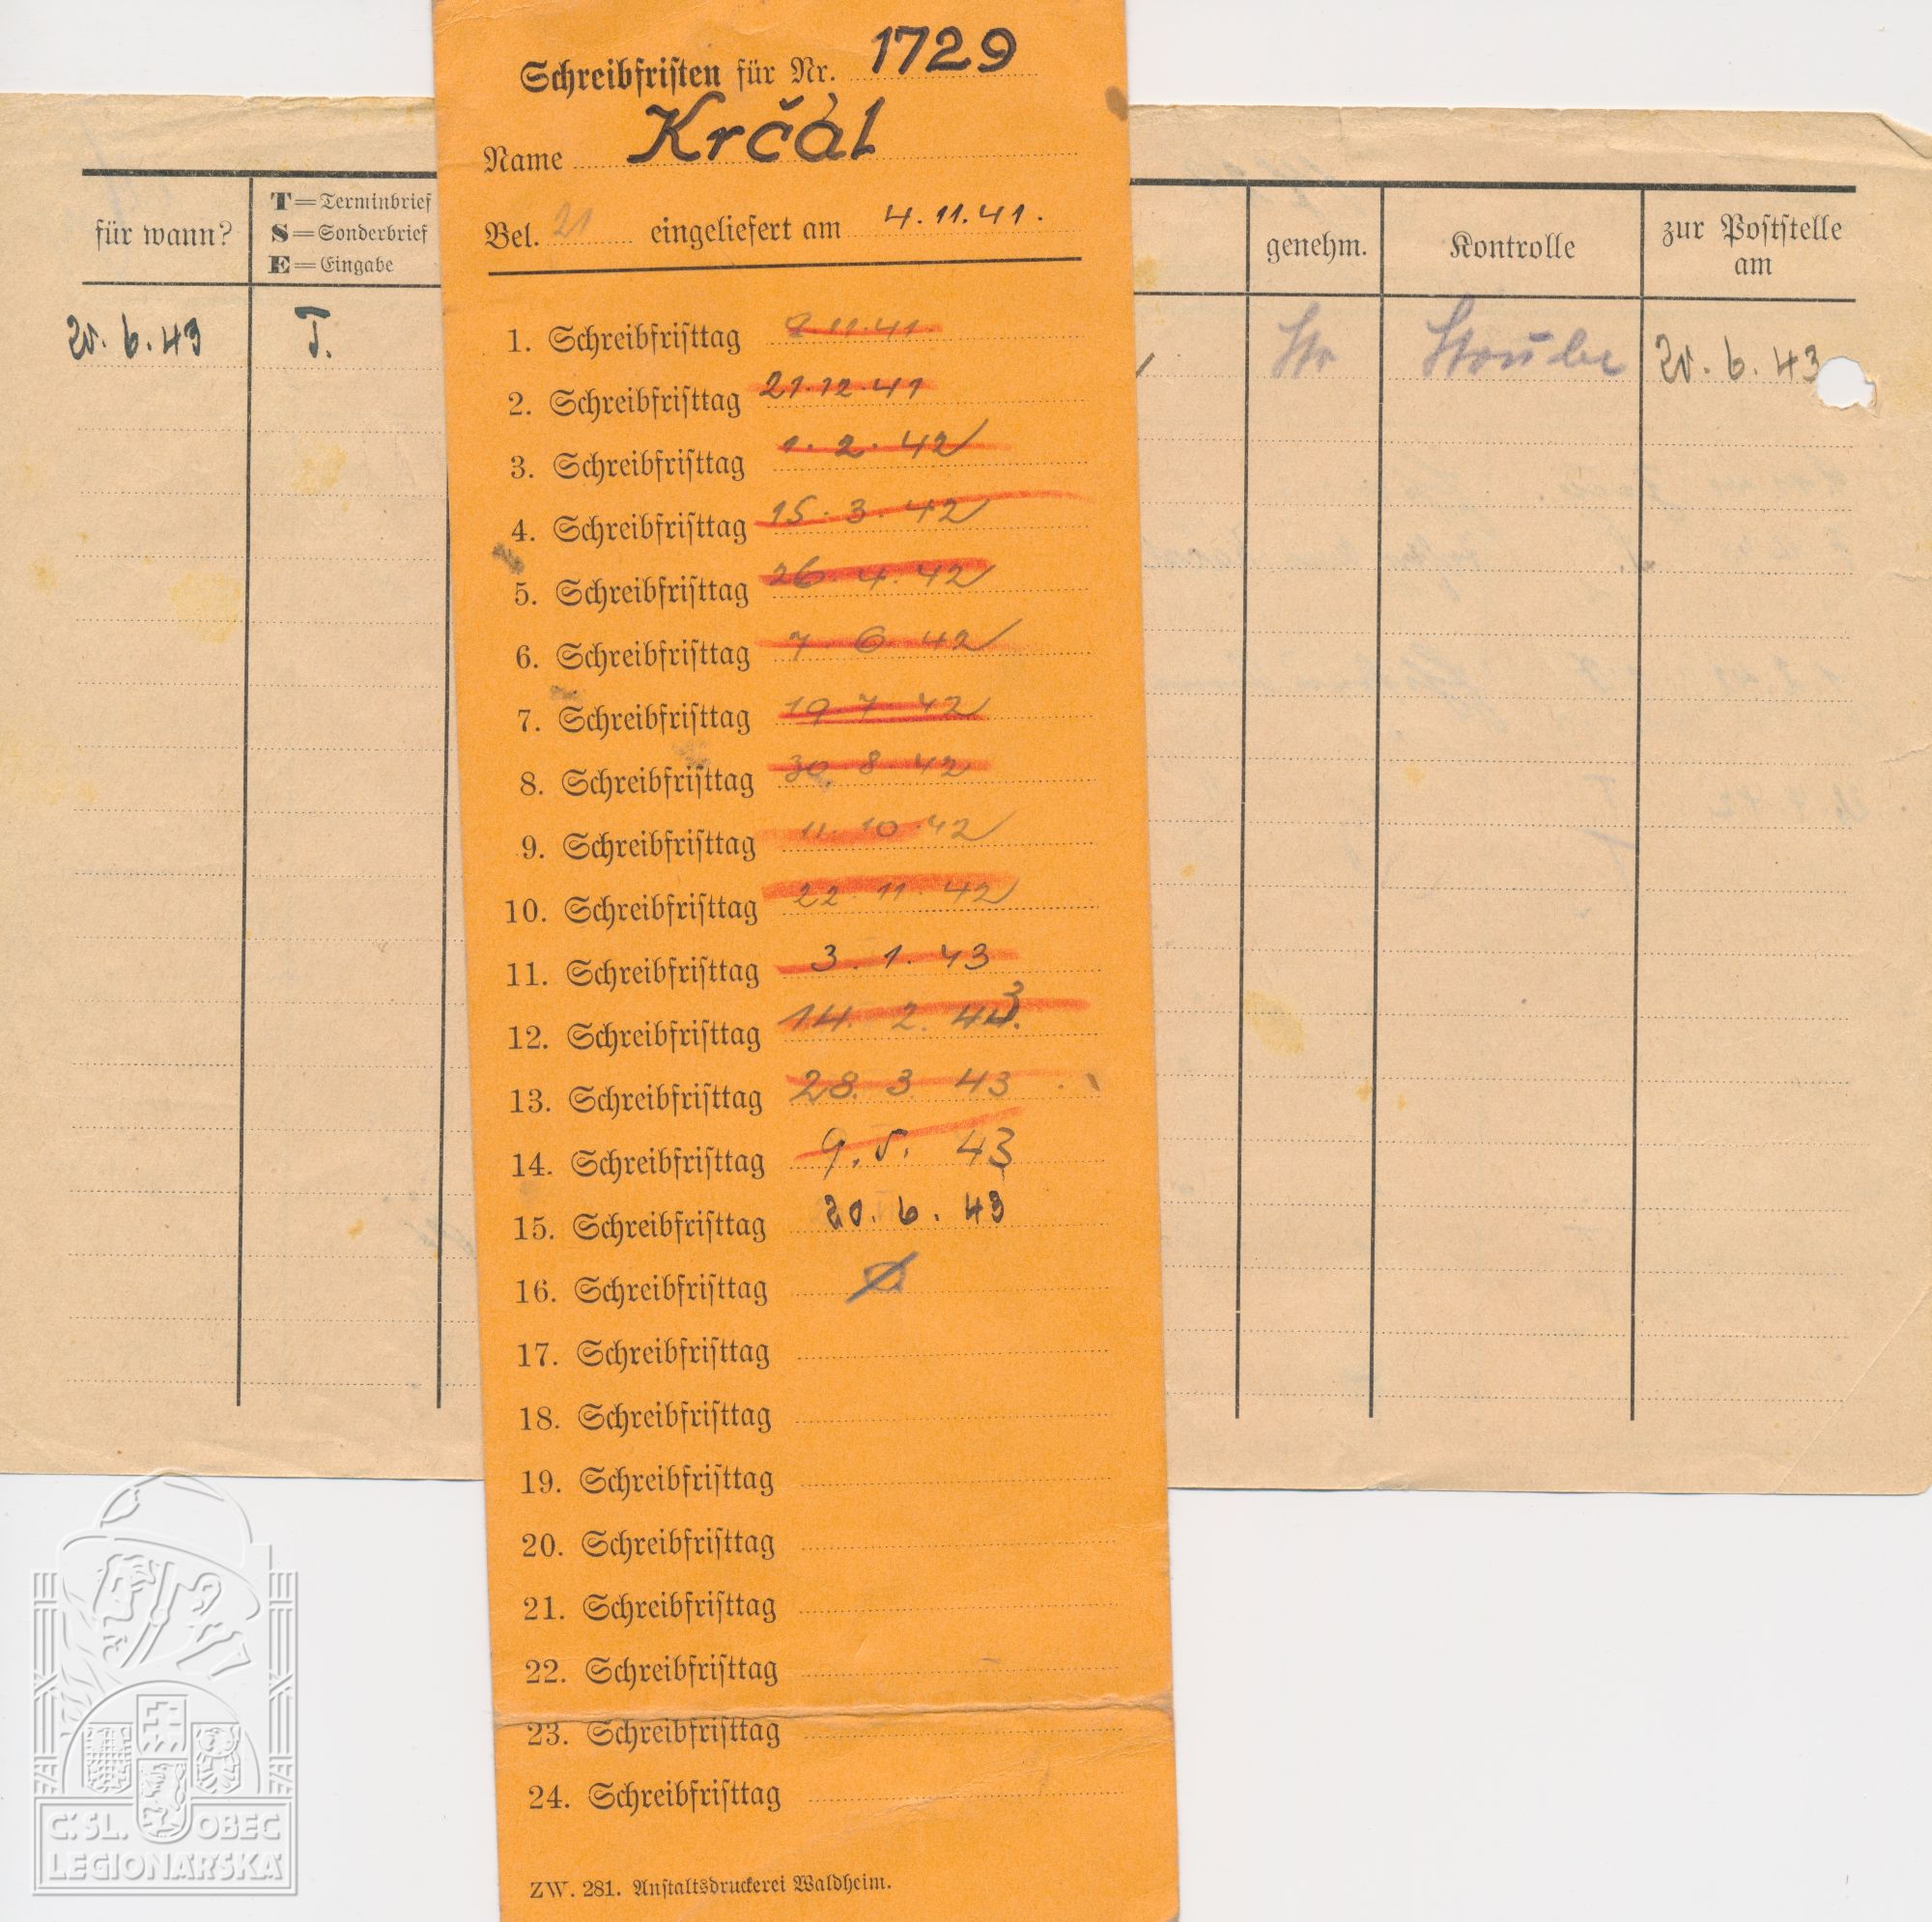 Schreibfristen für Nr. 1729
Name Krčál
Bel. 21 eingeliefert am 4.11.41.
1. Schreibfristtag 9.11.41.
2. Schreibfristtag 21.12.41
3. Schreibfristtag 1.2.42
4. Schreibfristtag 15.3.42
5. Schreibfristtag 26.4.42
6. Schreibfristtag 7.6.42
7. Schreibfristtag 19.7.42
8. Schreibfristtag 30.8.42
9. Schreibfristtag 11.10.42
10. Schreibfristtag 22.11.42
11. Schreibfristtag 3.1.43
12. Schreibfristtag 14.2.43
13. Schreibfristtag 28.3.43
14. Schreibfristtag 9.5.43
15. Schreibfristtag 20.6.43
16. Schreibfristtag Ø
17. Schreibfristtag
18. Schreibfristtag
19. Schreibfristtag
20. Schreibfristtag
21. Schreibfristtag
22. Schreibfristtag
23. Schreibfristtag
24. Schreibfristtag
ZW. 281. Anstaltsdruckerei Waldheim.
für wann?
T=Terminbrief
S=Sonderbrief
E=Eingabe
genehm.
Kontrolle
zur Poststelle
am
20.6.43 T. 20.6.43
Č.SL. OBEC
LEGIONÁŘSKÁ